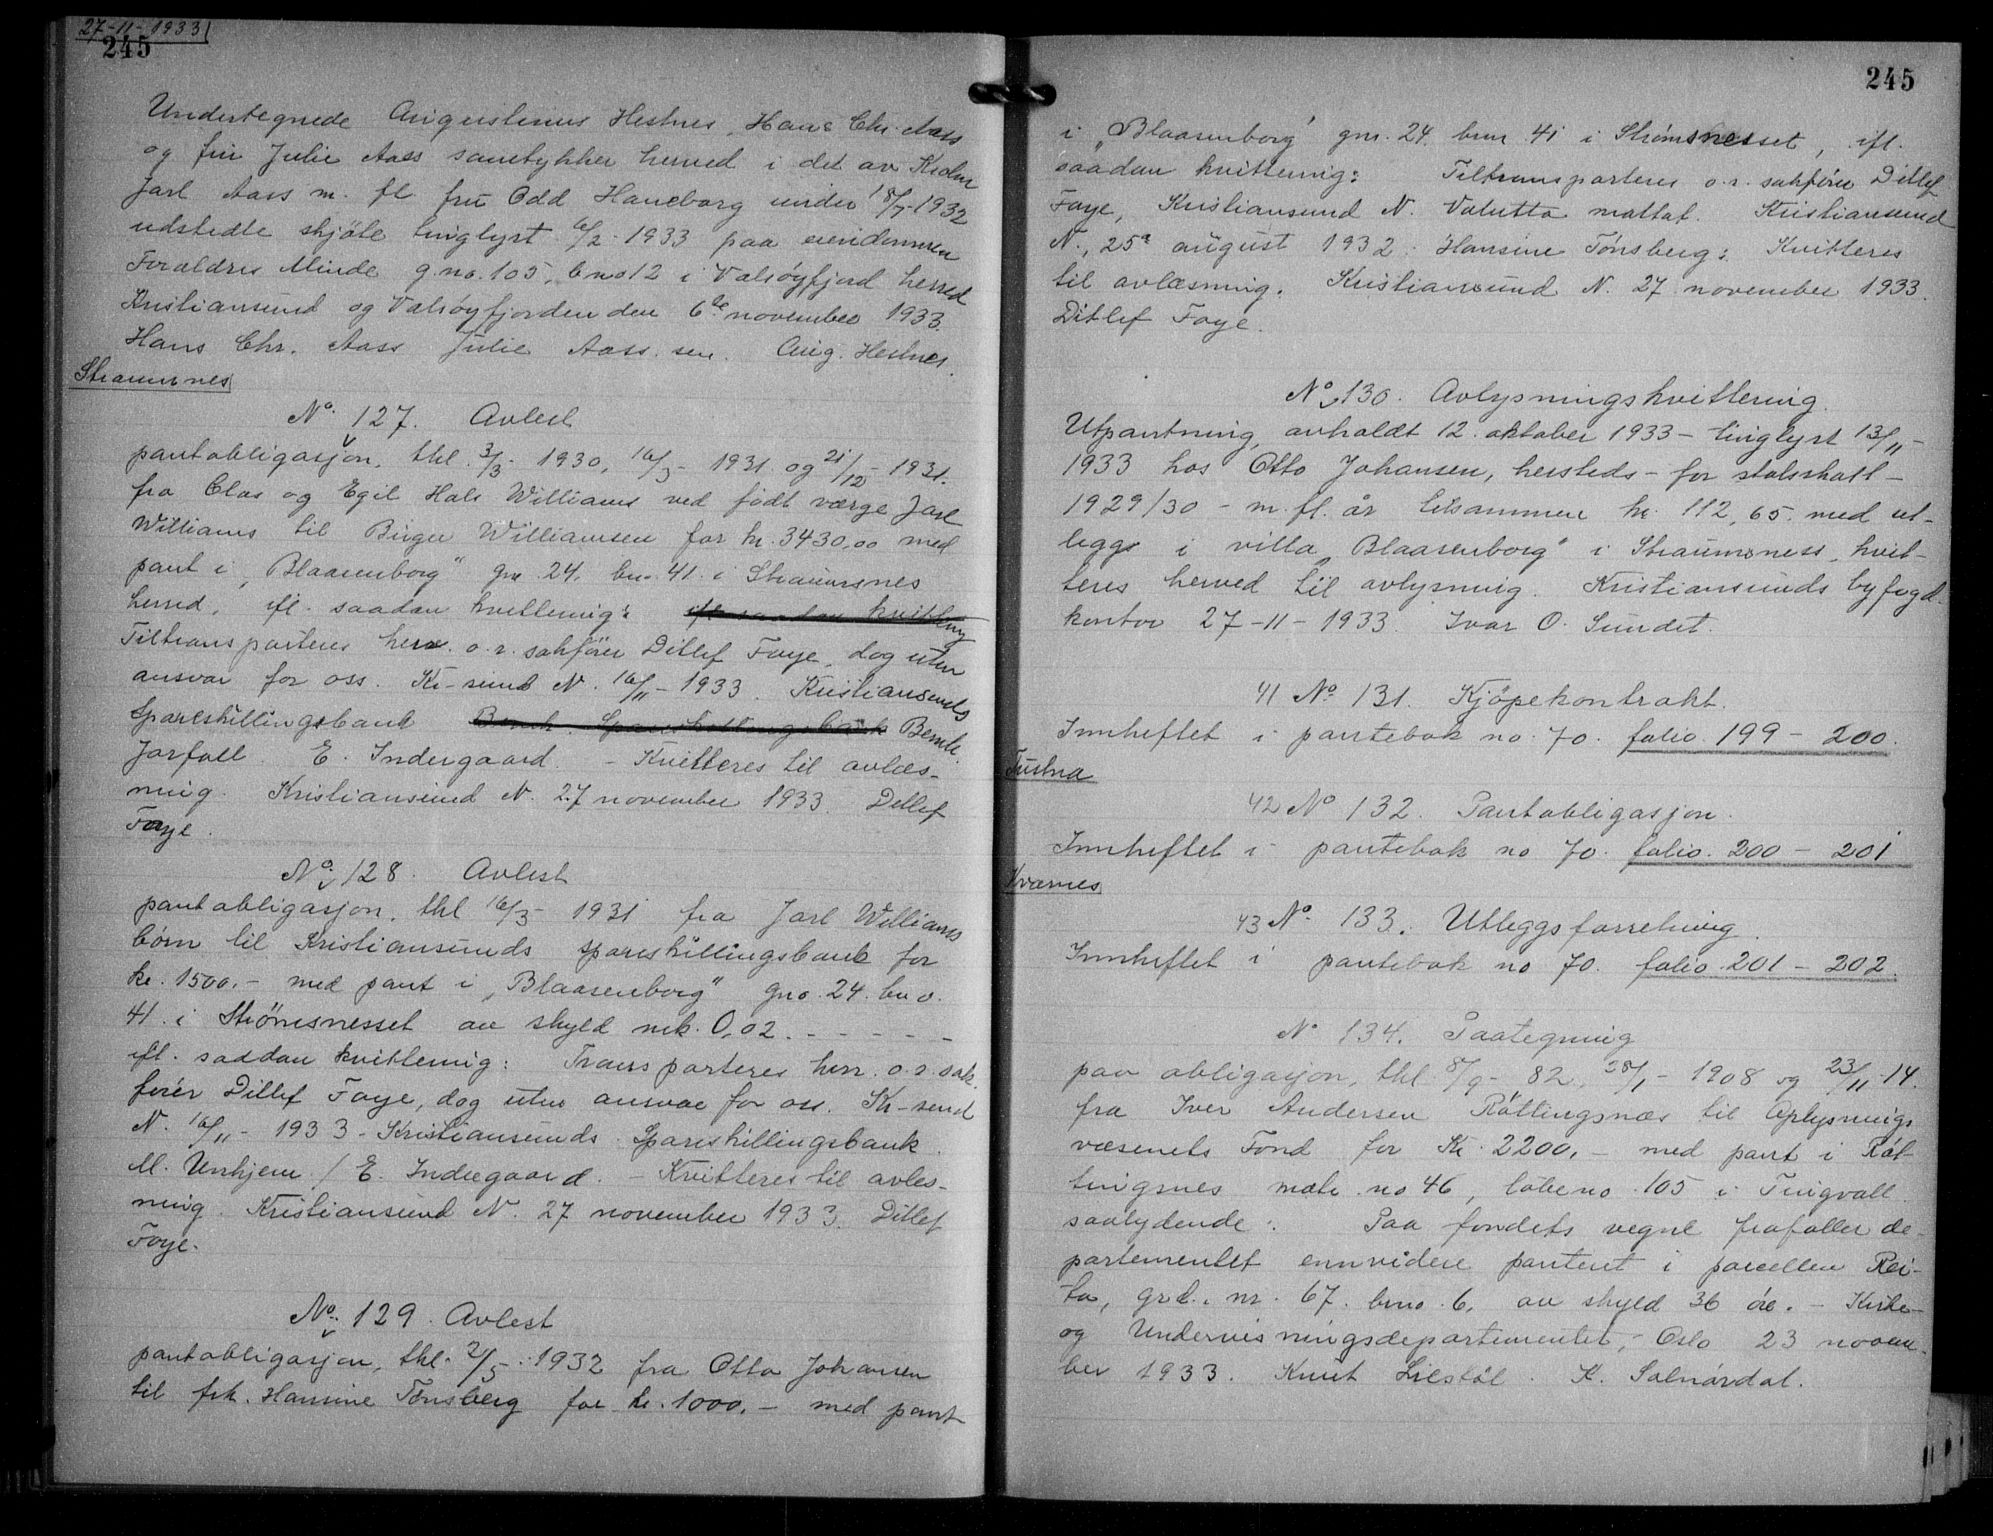 27-11-1933
245
Undertegnede Augustinus Hestnes, Hans Chr. Aass
og fru Julie Aass samtykker herved i det av
Jarl Aass m. fl. fru Odd Haneborg under 18/7-1932
udstedte skjöte tinglyst 6/2-1933 paa eiendommen
Forældres Minde g.no. 105, b.no 12 i Valsöyfjord herred
Kristiansund og Valsöyfjorden den 6te november 1933.
Hans Chr. Aass Julie Aass. sen. Aug. Hestnes.
Straumsnes
No. 127. Avlest
pantobligasjon, thl. 3/3-1930, 16/3-1931 og 21/12-1931.
fra Clas og Egil Hals Williams ved födt værge Jarl
Williams til Birger Williamsen for kr. 3430,00 med
pant i „Blaasenborg" gnr. 24. bn. 41. i Straumsnes
herred, ifl. saadan kvittering: ifl saadan kvittering
Tiltransporteres herr. o.r. sakförer Ditlef Faye, dog uten
ansvar for oss. Kr-sund N. 16/11-1933. Kristiansunds
Spareskillingsbank Bernh. Spareskillingsbank Bernh.
Jarfall. E. Indergaard. - Kvitteres til avlæs-
ning. Kristiansund N. 27 november 1933. Ditlef
Faye.
No. 128. Avlest
pantobligasjon, thl 16/3-1931 fra Jarl Williams
börn til Kristiansunds spareskillingsbank for
kr. 1500.- med pant i „Blaasenborg" gno. 24. bno.
41. i Strömsnesset av skyld mk. 0,02. - - - - -
ifl. saddan kvittering: Transporteres herr. o.r. sak
förer Ditlef Faye, dog uten ansvar for oss. Kr-sund
N. 16/11-1933 - Kristiansunds Spareskillingsbank.
M. Unhjem / E. Indregaard. - Kvitteres til avles-
ning. Kristiansund N. 27 november 1933. Ditlef
Faye.
No. 129. Avlest
pantobligasjon, thl. 2/5-1932 fra Otto Johansen
til frk. Hansine Tönsberg for kr. 1000.- med pant
245
i „Blaasenborg" gnr. 24. bnr. 41 i Strömsnesset, ifl.
saadan kvittering: Tiltransporteres o.r. sakförer Ditlef
Faye, Kristiansund N. Valutta mottat. Kristiansund
N., 25 august 1932. Hansine Tönsberg: Kvitteres
til avlæsning. Kristiansund N. 27 november 1933.
Ditlef Faye.
No. 130. Avlysningskvittering.
Utpantning, avholdt 12. oktober 1933 - tinglyst 13/11-
1933 hos Otto Johansen, hersteds - for statsskatt -
1929/30 - m. fl. år tilsammen kr. 112,65. med ut-
legg i villa „Blaasenborg" i Straumsness, kvit-
teres herved til avlysning. Kristiansunds byfogd
kontor 27-11-1933. Ivar O. Sundet.
41 No. 131. Kjöpekontrakt.
Innheftet i pantebok no. 70. folio. 199 - 200.
Tustna
42 No 132. Pantobligasjon.
Innheftet i pantebok no 70. folio. 200 - 201
Kvernes
43 No. 133. Utleggsforretning.
Innheftet i pantebok no 70. folio. 201 - 202.
No 134. Paategning
paa obligasjon, thl. 8/9-82, 28/1-1908 og 23/11-14.
fra Iver Andersen Röttingsnæs til Oplysnings
væsenets Fond for Kr. 2200,- med pant i Röt-
tingsnes matr. no 46, löbeno. 105 i Tingvoll.
saalydende: Paa fondets vegne frafaller de-
partementet ennvidere panteret i parcellen Rei-
ta, grd. nr. 67. bno. 6. av skyld 36 öre. - Kirke-
og Undervisningsdepartementet, - Oslo 23 novem-
ber 1933. Knut Liestöl. K. Solnördal.